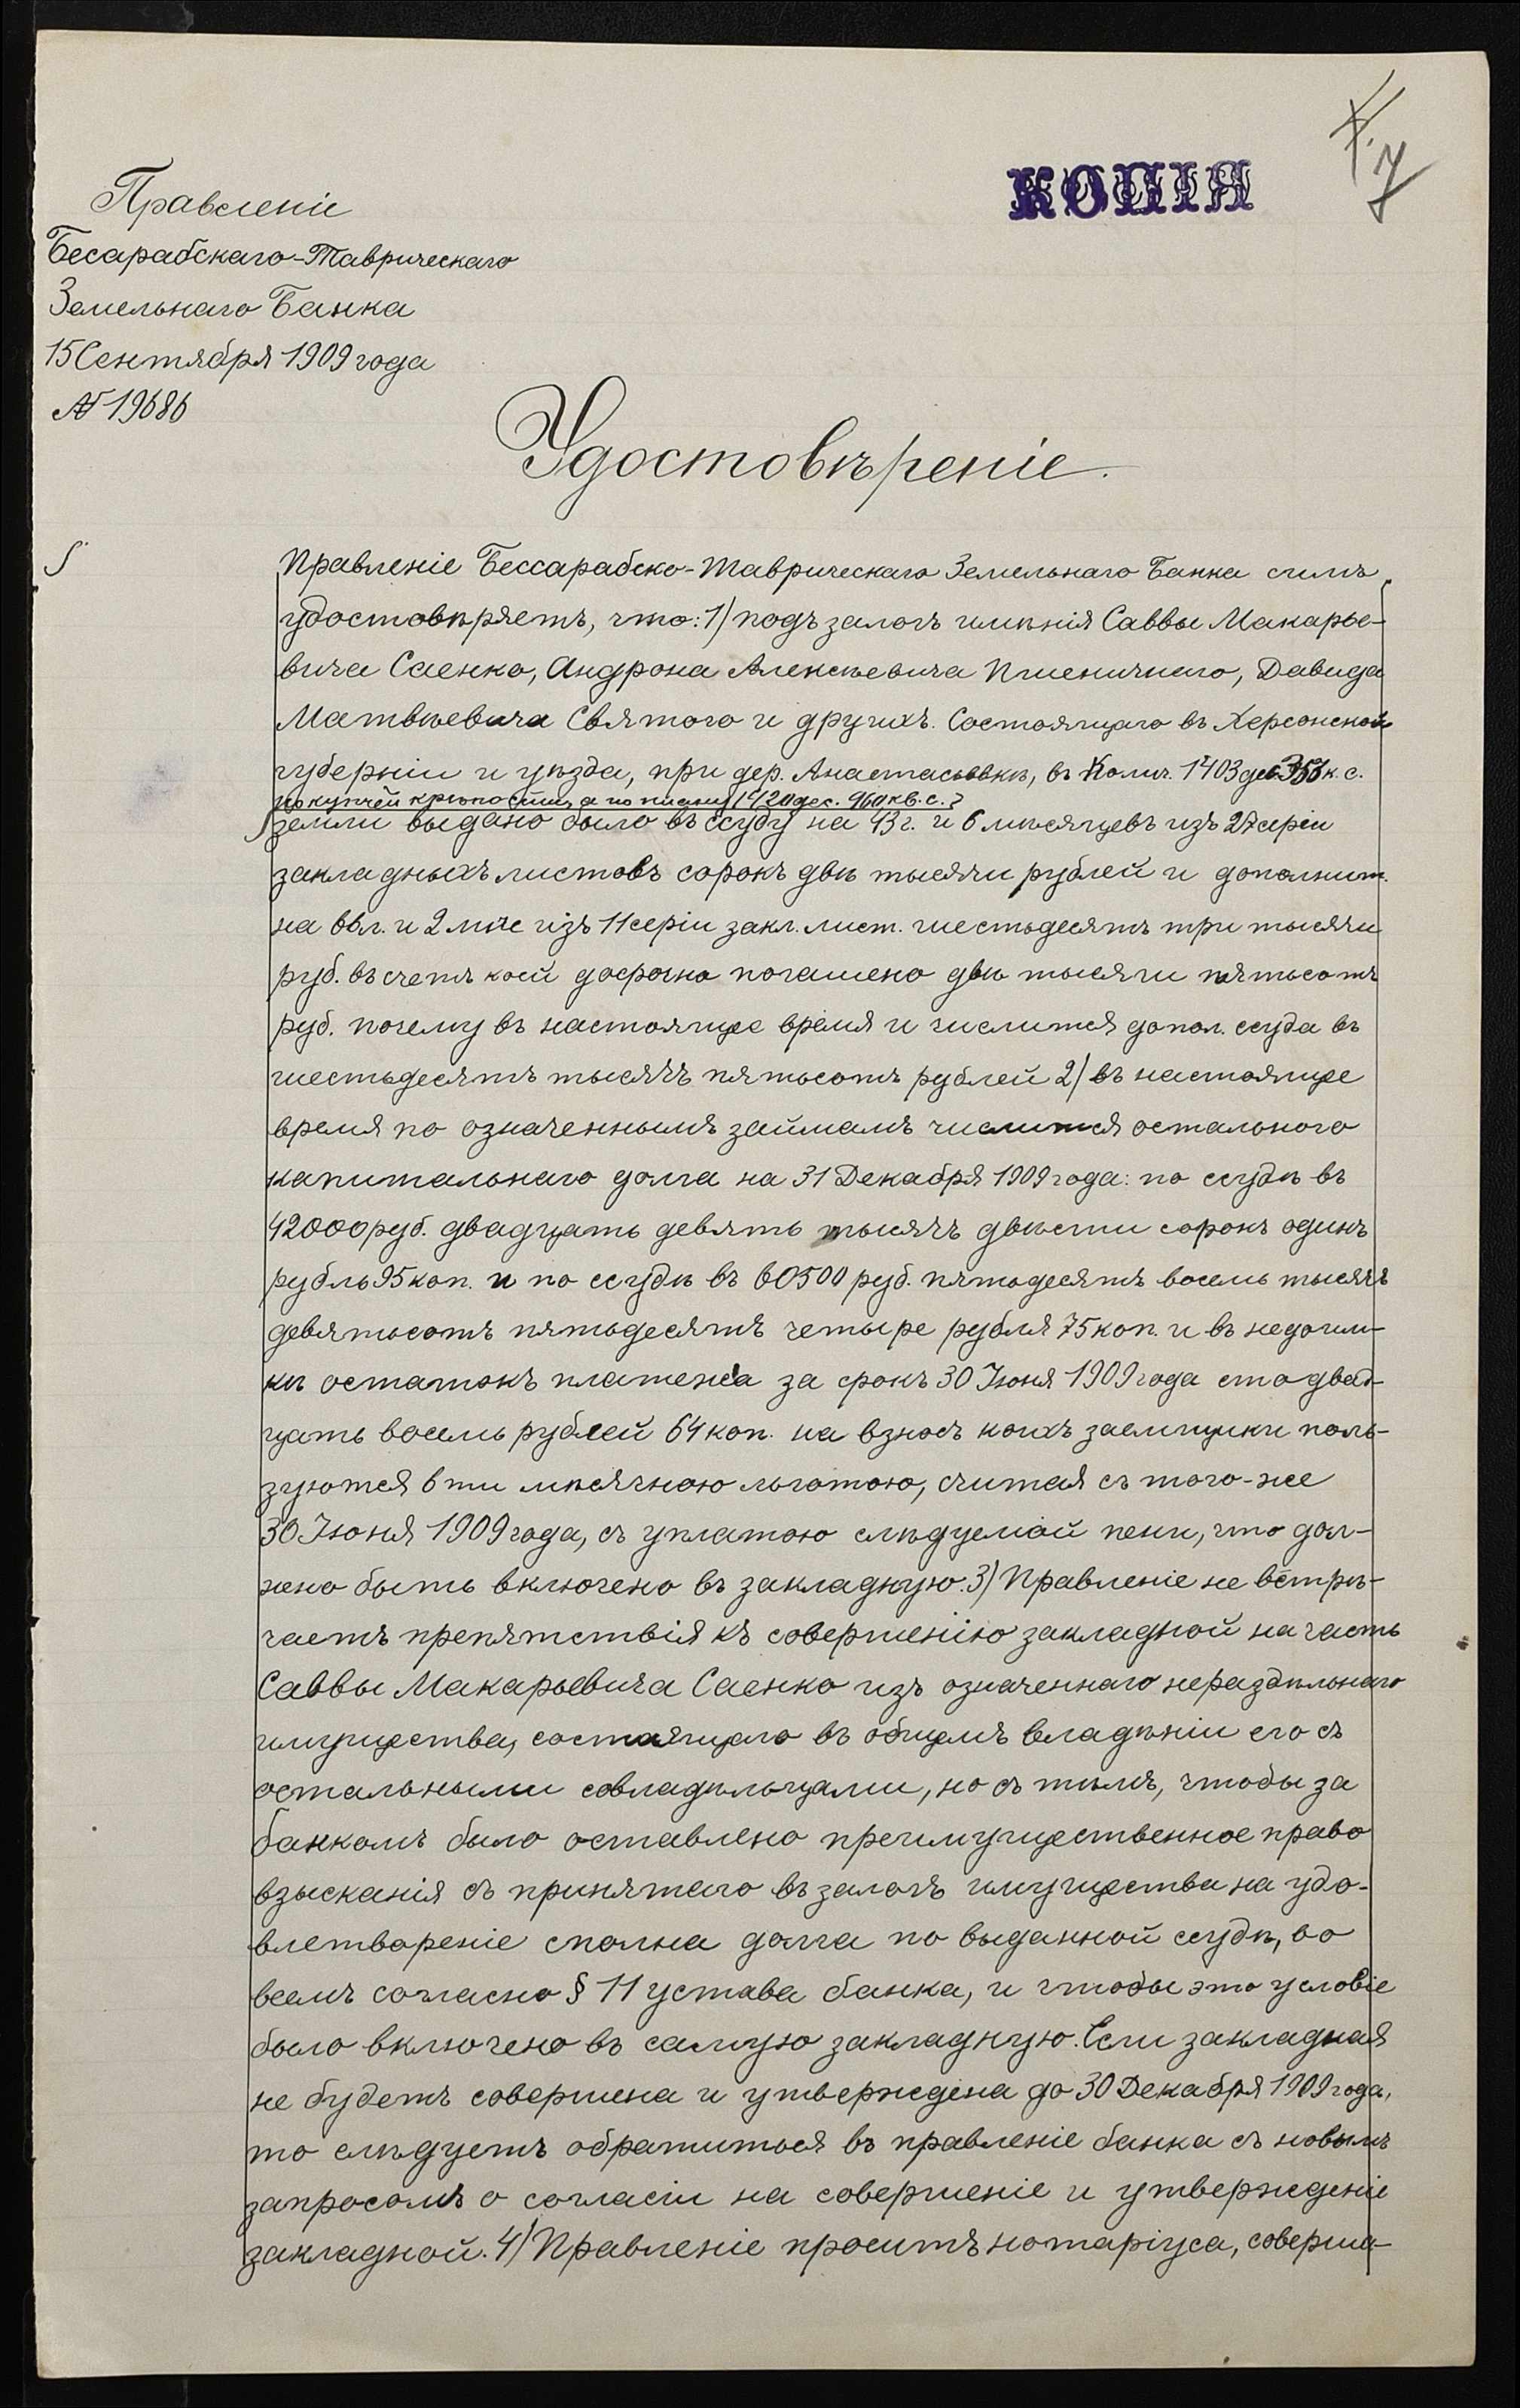 КОПІЯ
7
Правленіе
Бесарабскаго-Таврическаго
Земельнаго Банка
15 Сентября 1909 года
№ 19686
Удостовѣреніе.
Правленіе Бессарабско-Таврическаго Земельнаго Банка симъ
удостовѣряетъ, что: 1) подъ залогъ имѣнія Саввы Макарье-
вича Саенко, Андрона Алексѣевича Пшеничнаго, Давида
Матвѣевича Святого и другихъ. Состоящаго въ Херсонской
губерніи и уѣзда, при дер. Анастасьевкѣ, въ Колич. 1403 дес. 356 к. с.
по купчей крѣпостии, а по плану 1420 дес. 960 кв. с.
земли выдано было въ ссуду на 43 г. и 6 мѣсяцевъ изъ 27 серіи
закладныхъ листовъ сорокъ двѣ тысячи рублей и дополнит.
на 66 л. и 2 мѣс изъ 11 серіи закл. лист. шестьдесятъ три тысячи
руб. въ счетъ коей досрочно погашено двѣ тысячи пятьсотъ
руб. почему въ настоящее время и числится допол. ссуда въ
шестьдесятъ тысячъ пятьсотъ рублей 2) въ настоящее
время по означеннымъ займамъ числится остального
капитальнаго долга на 31 Декабря 1909 года: по ссудѣ въ
42000 руб. двадцать девять тысячъ двѣсти сорокъ одинъ
рубль 95 коп. и по ссудѣ въ 60500 руб. пятьдесятъ восемь тысячъ
девятьсотъ пятьдесятъ четыре рубля 75 коп. и въ недоим-
кѣ остатокъ платежа за срокъ 30 Іюня 1909 года сто двад-
цать восемь рублей 64 коп. на взносъ коихъ заемщики поль-
зуются 6 ти мѣсячною льготою, считая съ того-же
30 Іюня 1909 года, съ уплатою слѣдуемой пени, что дол-
жно быть включено въ закладную. 3) Правленіе не встрѣ-
чаетъ препятствія къ совершенію закладной на часть
Саввы Макарьевича Саенко изъ означеннаго нераздѣльнаго
имущества, состоящаго въ общемъ владѣніи его съ
остальными совладѣльцами, но съ тѣмъ, чтобы за
банкомъ было оставлено преимущественное право
взысканія съ принятаго въ залогъ имущества на удо-
влетвореніе сполна долга по выданной ссудѣ, во
всемъ согласно § 11 устава банка, и чтобы это условіе
было включено въ самую закладную. Если закладная
не будетъ совершена и утверждена до 30 Декабря 1909 года,
то слѣдуетъ обратиться въ правленіе банка съ новымъ
запросомъ о согласіи на совершеніе и утвержденіе
закладной. 4) Правленіе проситъ нотаріуса, соверша-